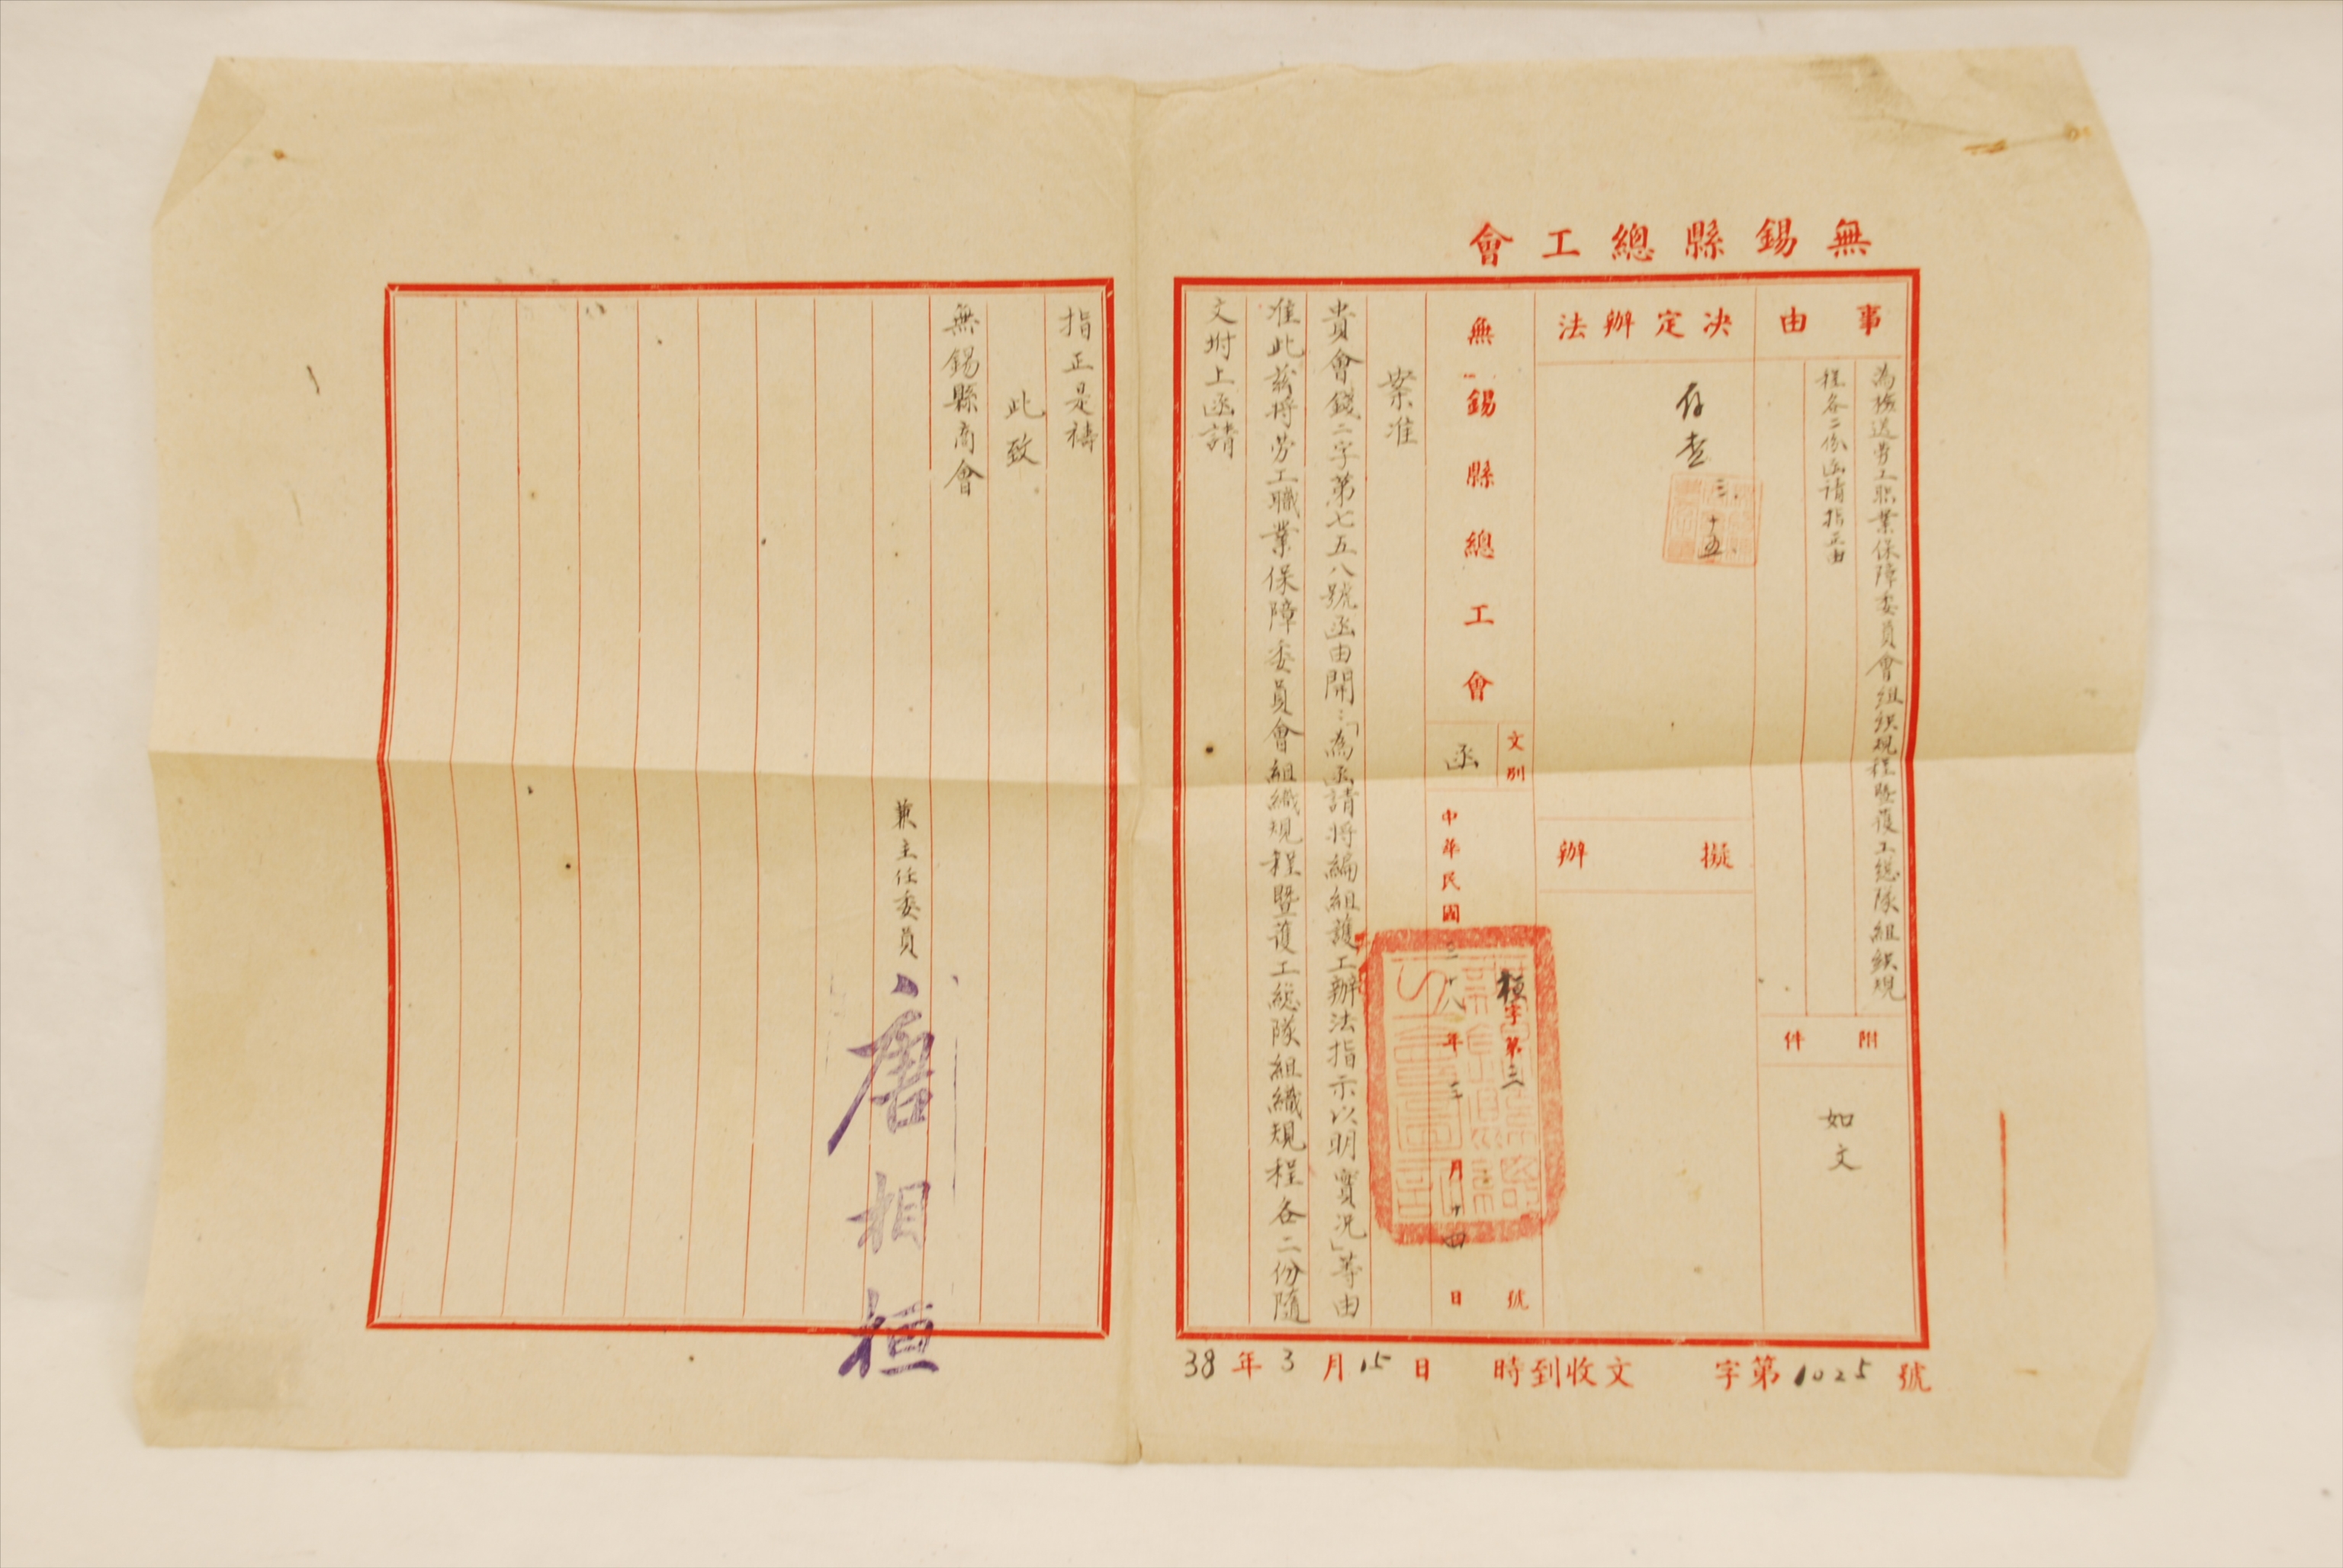 無錫縣總工會
事由
為檢送劳工职業保障委員會組織規程暨護工總隊組織規
程各二份函請指正由
附件
如文
決定辦法
存查
三．十五．
擬辦
無錫縣總工會
文別
函
桓字第三號
中華民國三十八年三月十四日
案准
貴會錢二字第七五八號函由開：「為函請將編組護工辦法指示以明實况」等由
准此茲將劳工職業保障委員會組織規程暨護工總隊組織規程各二份隨
文坿上函請
指正是禱
此致
無錫縣商會
兼主任委員
唐相桓
38年3月15日 時到收文 字第1025號